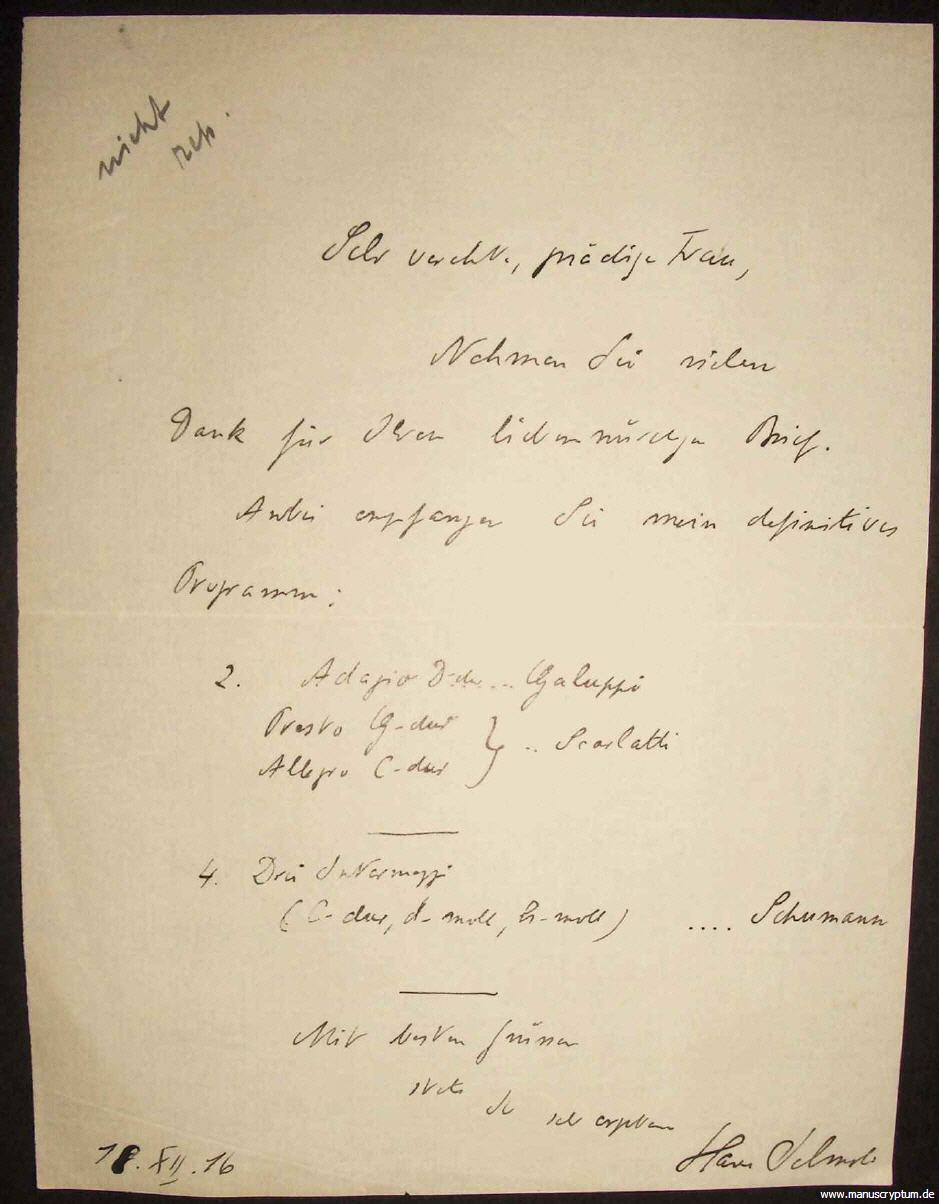 nicht
rep.
Sehr verehrte, gnädige Frau,
Nehmen Sie vielen
Dank für Ihren liebenswürdigen Brief.
Anbei empfangen Sie mein definitives
Programm:
2. Adagio D-dur ... Galuppi
Presto G-dur
Allegro C-dur } .. Scarlatti
4. Drei Intermezzi
(C-dur, d-moll, -moll) .... Schumann
Mit besten Grüssen
stets Ihr sehr ergebener
Hans
.XII.16
www.manuscryptum.de